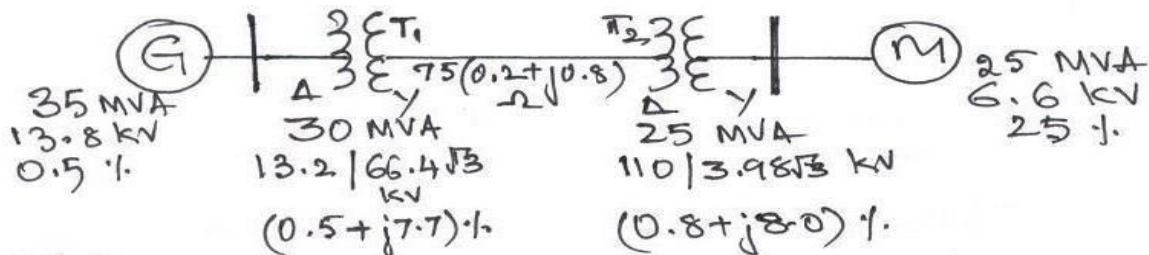 G
35 MVA
13.8 KV
0.5 %
T₁
Δ Y
30 MVA
13.2 | 66.4√3
KV
(0.5 + j7.7) %
75(0.2+j0.8)
Ω
T₂
Δ Y
25 MVA
110 | 3.98√3 KV
(0.8 + j8.0) %
M
25 MVA
6.6 KV
25 %